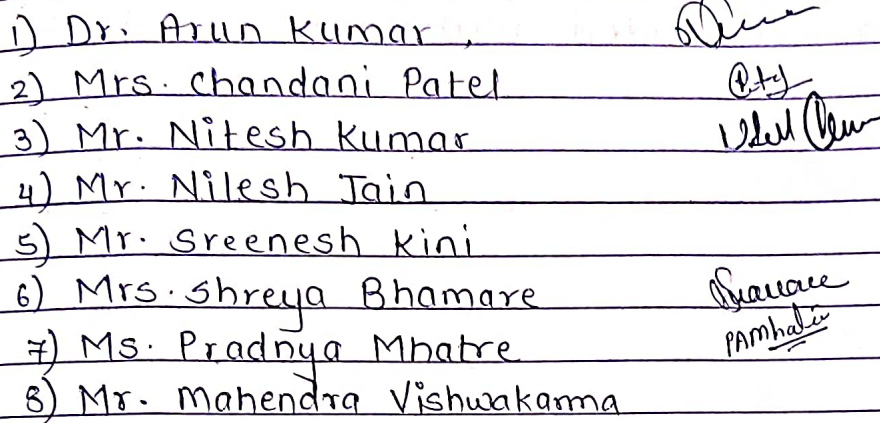 1) Dr. Arun Kumar,
2) Mrs. Chandani Patel
3) Mr. Nitesh Kumar
4) Mr. Nilesh Jain
5) Mr. Sreenesh Kini
6) Mrs. Shreya Bhamare
7) Ms. Pradnya Mhatre PAMhatre
8) Mr. Mahendra Vishwakarma